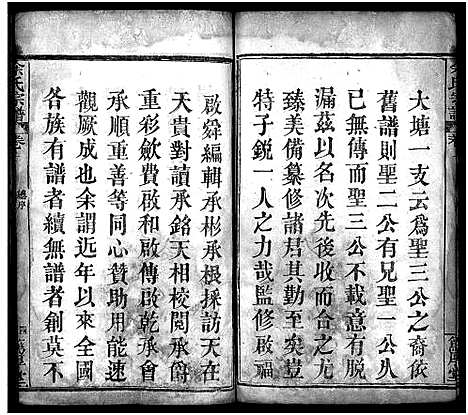 大塘一支云為聖三公之裔餀
舊譜則聖二公有兄聖一公
已無傳而聖三公不載意有脱
漏茲以名次為次行先後紹述
臻美備纂修諸君其勤至矣
特子鋭一人哉監修一啟福
啟舜編輯承彬承根採訪天在
天貴對讀承銘天相校閲承爵
重彩歛費啟和啟傳啟乾承會
承順重善等同心賛助用能速
觀厥成也余謂近年以來全國
各族有譜者續無譜者創莫不
余氏宗譜
總序